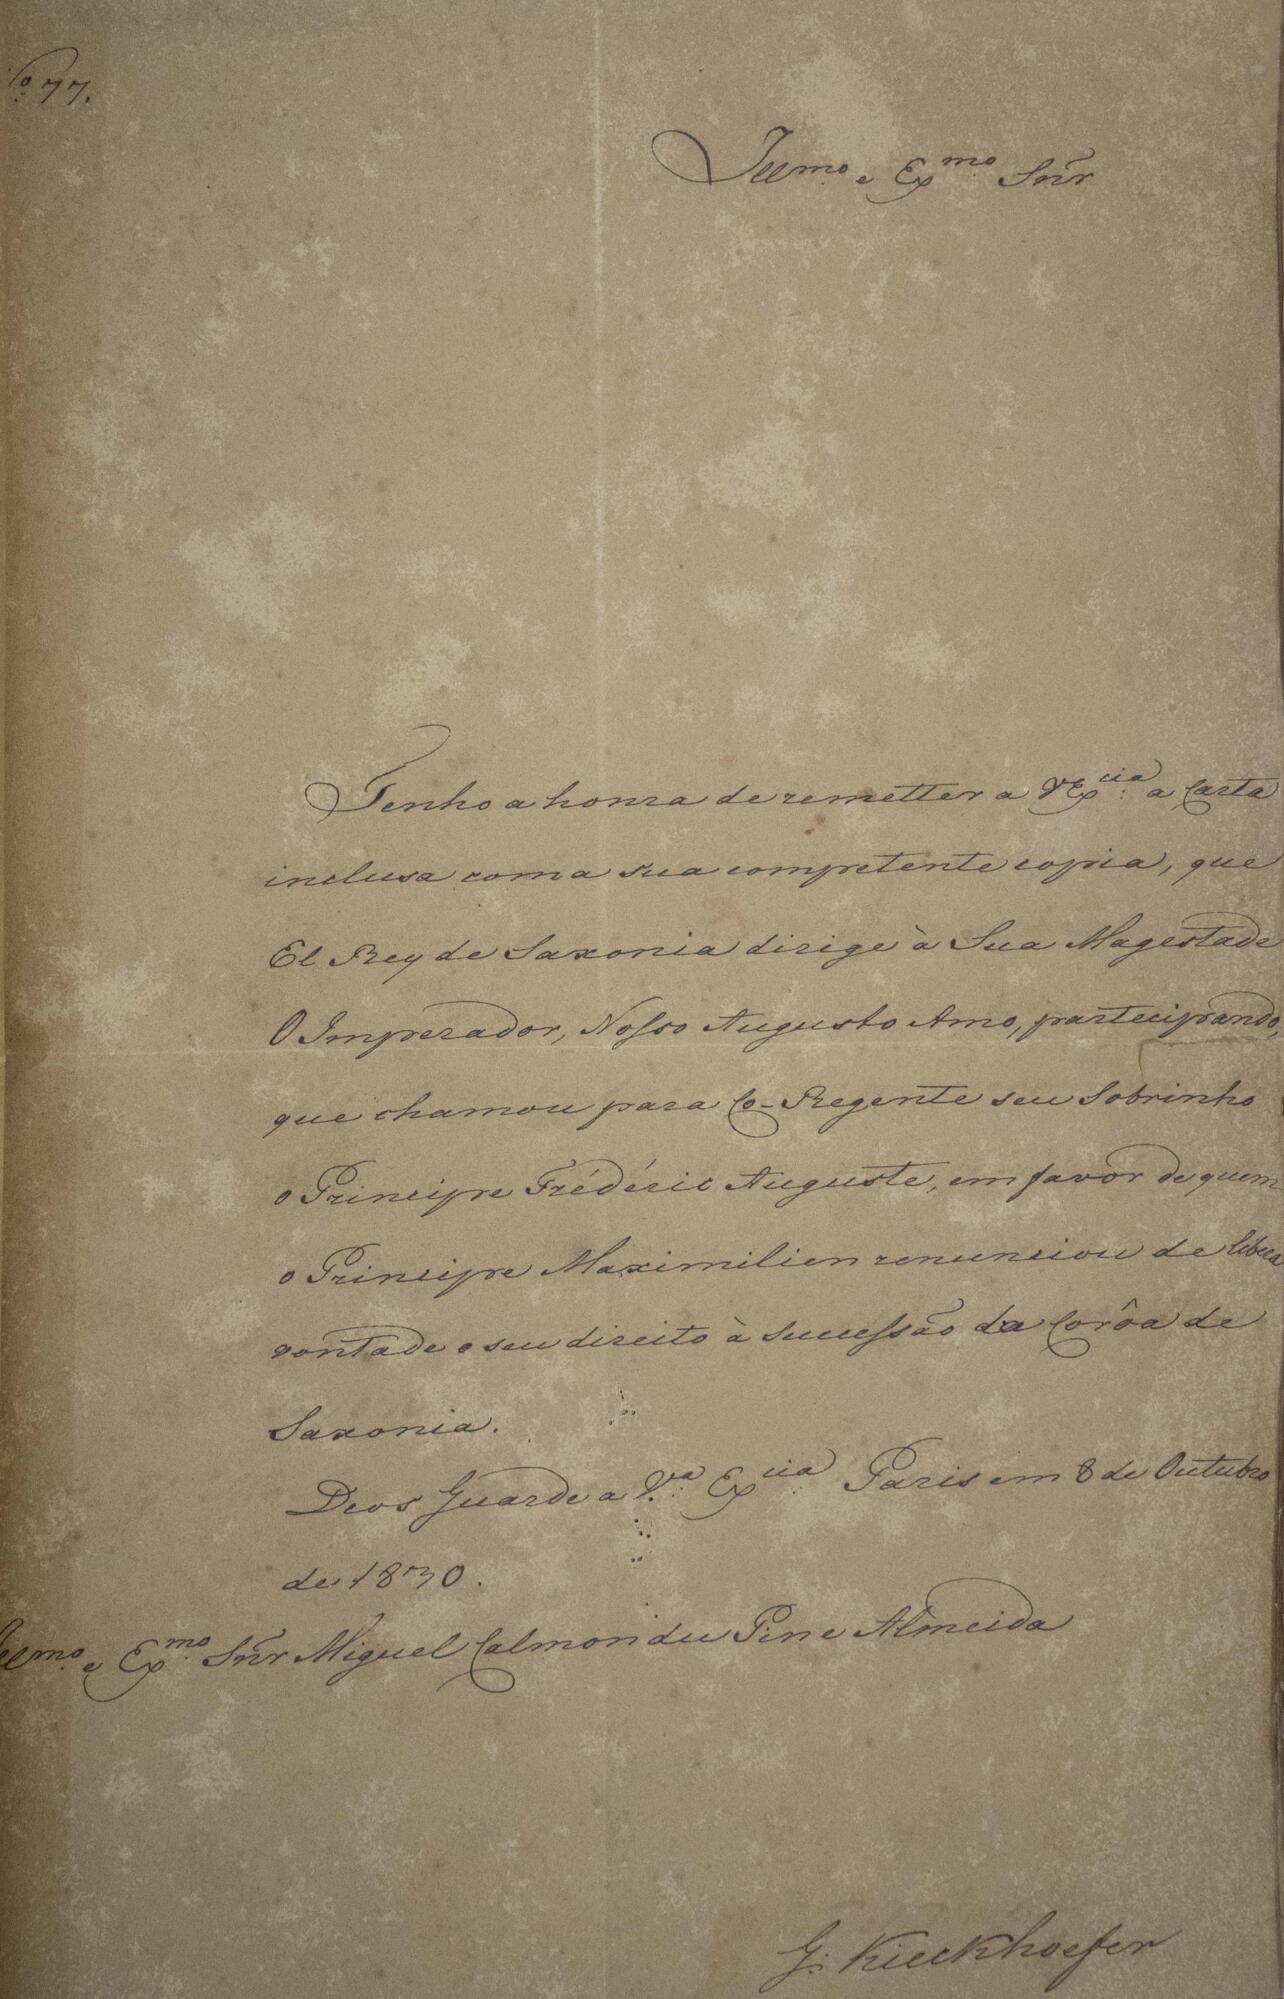 Nº 77.
Illmo. e Exmo. Snr̃
Tenho a honra de remetter a VExcia. a Carta
inclusa com a sua competente copia, que
El Rey de Saxonia dirige à Sua Magestade
O Imperador, Nosso Augusto Amo, partecipando,
que chamou para Co-Regente seu Sobrinho
o Principe Frédéric Auguste, em favor de quem
o Principe Maximilien renunciou de libera
vontade o seu direito à Sucessão da Corôa de
Saxonia.
Deos Guarde a V.a Excia. Paris em 8 de Outubro
de 1830.
Illmo. e Exmo. Snr̃ Miguel Calmon du Pin e Almeida
G. Kieckhoefer